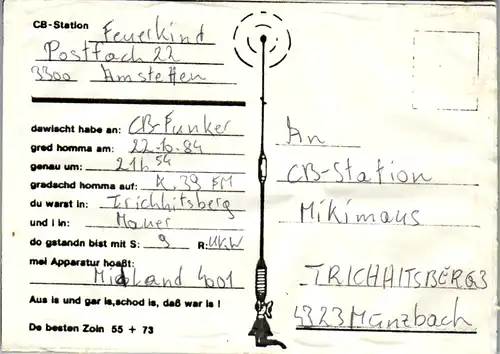 CB-Station Feuerkind
Postfach 22
3300 Amstetten
dawischt habe an: CB-Funker
gred homma am: 22.10.84
genau um: 21h 54
gradschd homma auf: K.39 FM
du warst in: Trichhitsberg
und i in: Mauer
do gstandn bist mit S: 9 R: UKW
mei Apparatur hoaßt:
Midland 4001
Aus is und gar is,schod is, daß war is !
De besten Zoin 55 + 73
An
CB-Station
Mikimaus
TRICHHITSBERG3
4323 Münzbach